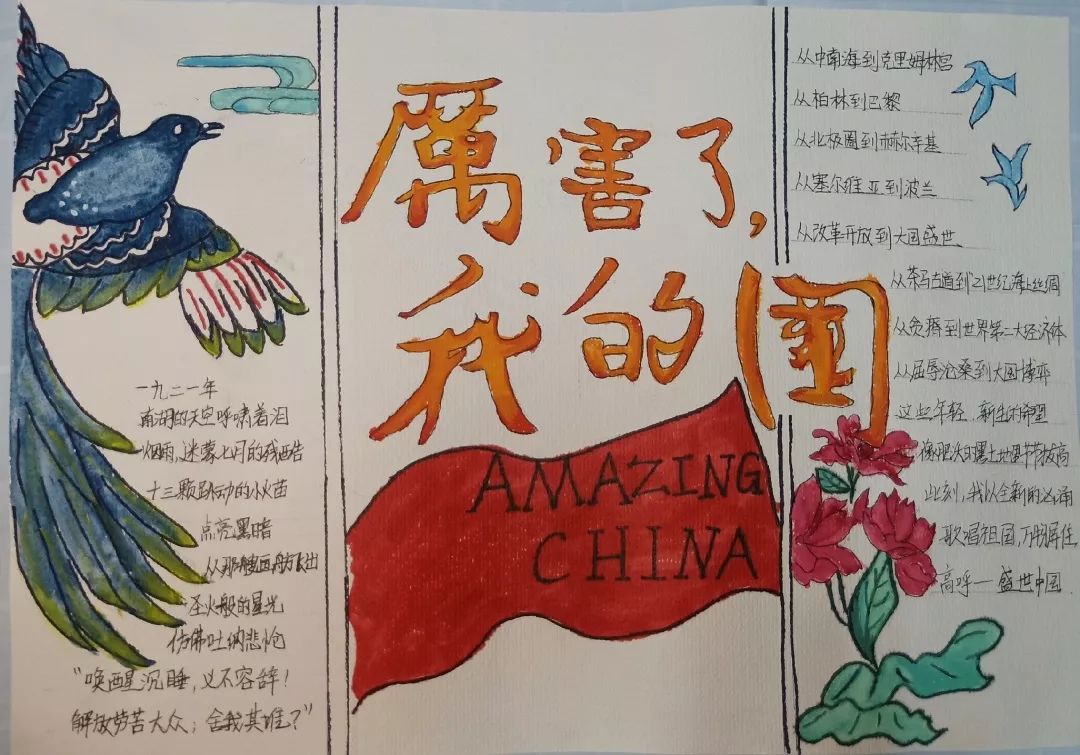 一九二一年
南湖的天空呼啸着泪
烟雨,迷蒙七月的残酷
十三颗跃动的小火苗
点亮黑暗
从那艘画舫飞出
圣火般的星光
仿佛吐纳悲怆
"唤醒沉睡,义不容辞!
解放劳苦大众;舍我其谁?"
厲害了,
我的國
AMAZING
CHINA
从中南海到克里姆林宫
从柏林到巴黎
从北极圈到赫尔辛基
从塞尔维亚到波兰
从改革开放到大国盛世
从茶马古道到"21世纪海上丝绸
从贫瘠到世界第二大经济体
从屈辱沧桑到大国博弈
这些年轻、新生的希望
像肥沃的黑土地里节节拔高
此刻,我以全新的 诵
歌唱祖国,万物屏住
高呼—盛世中国